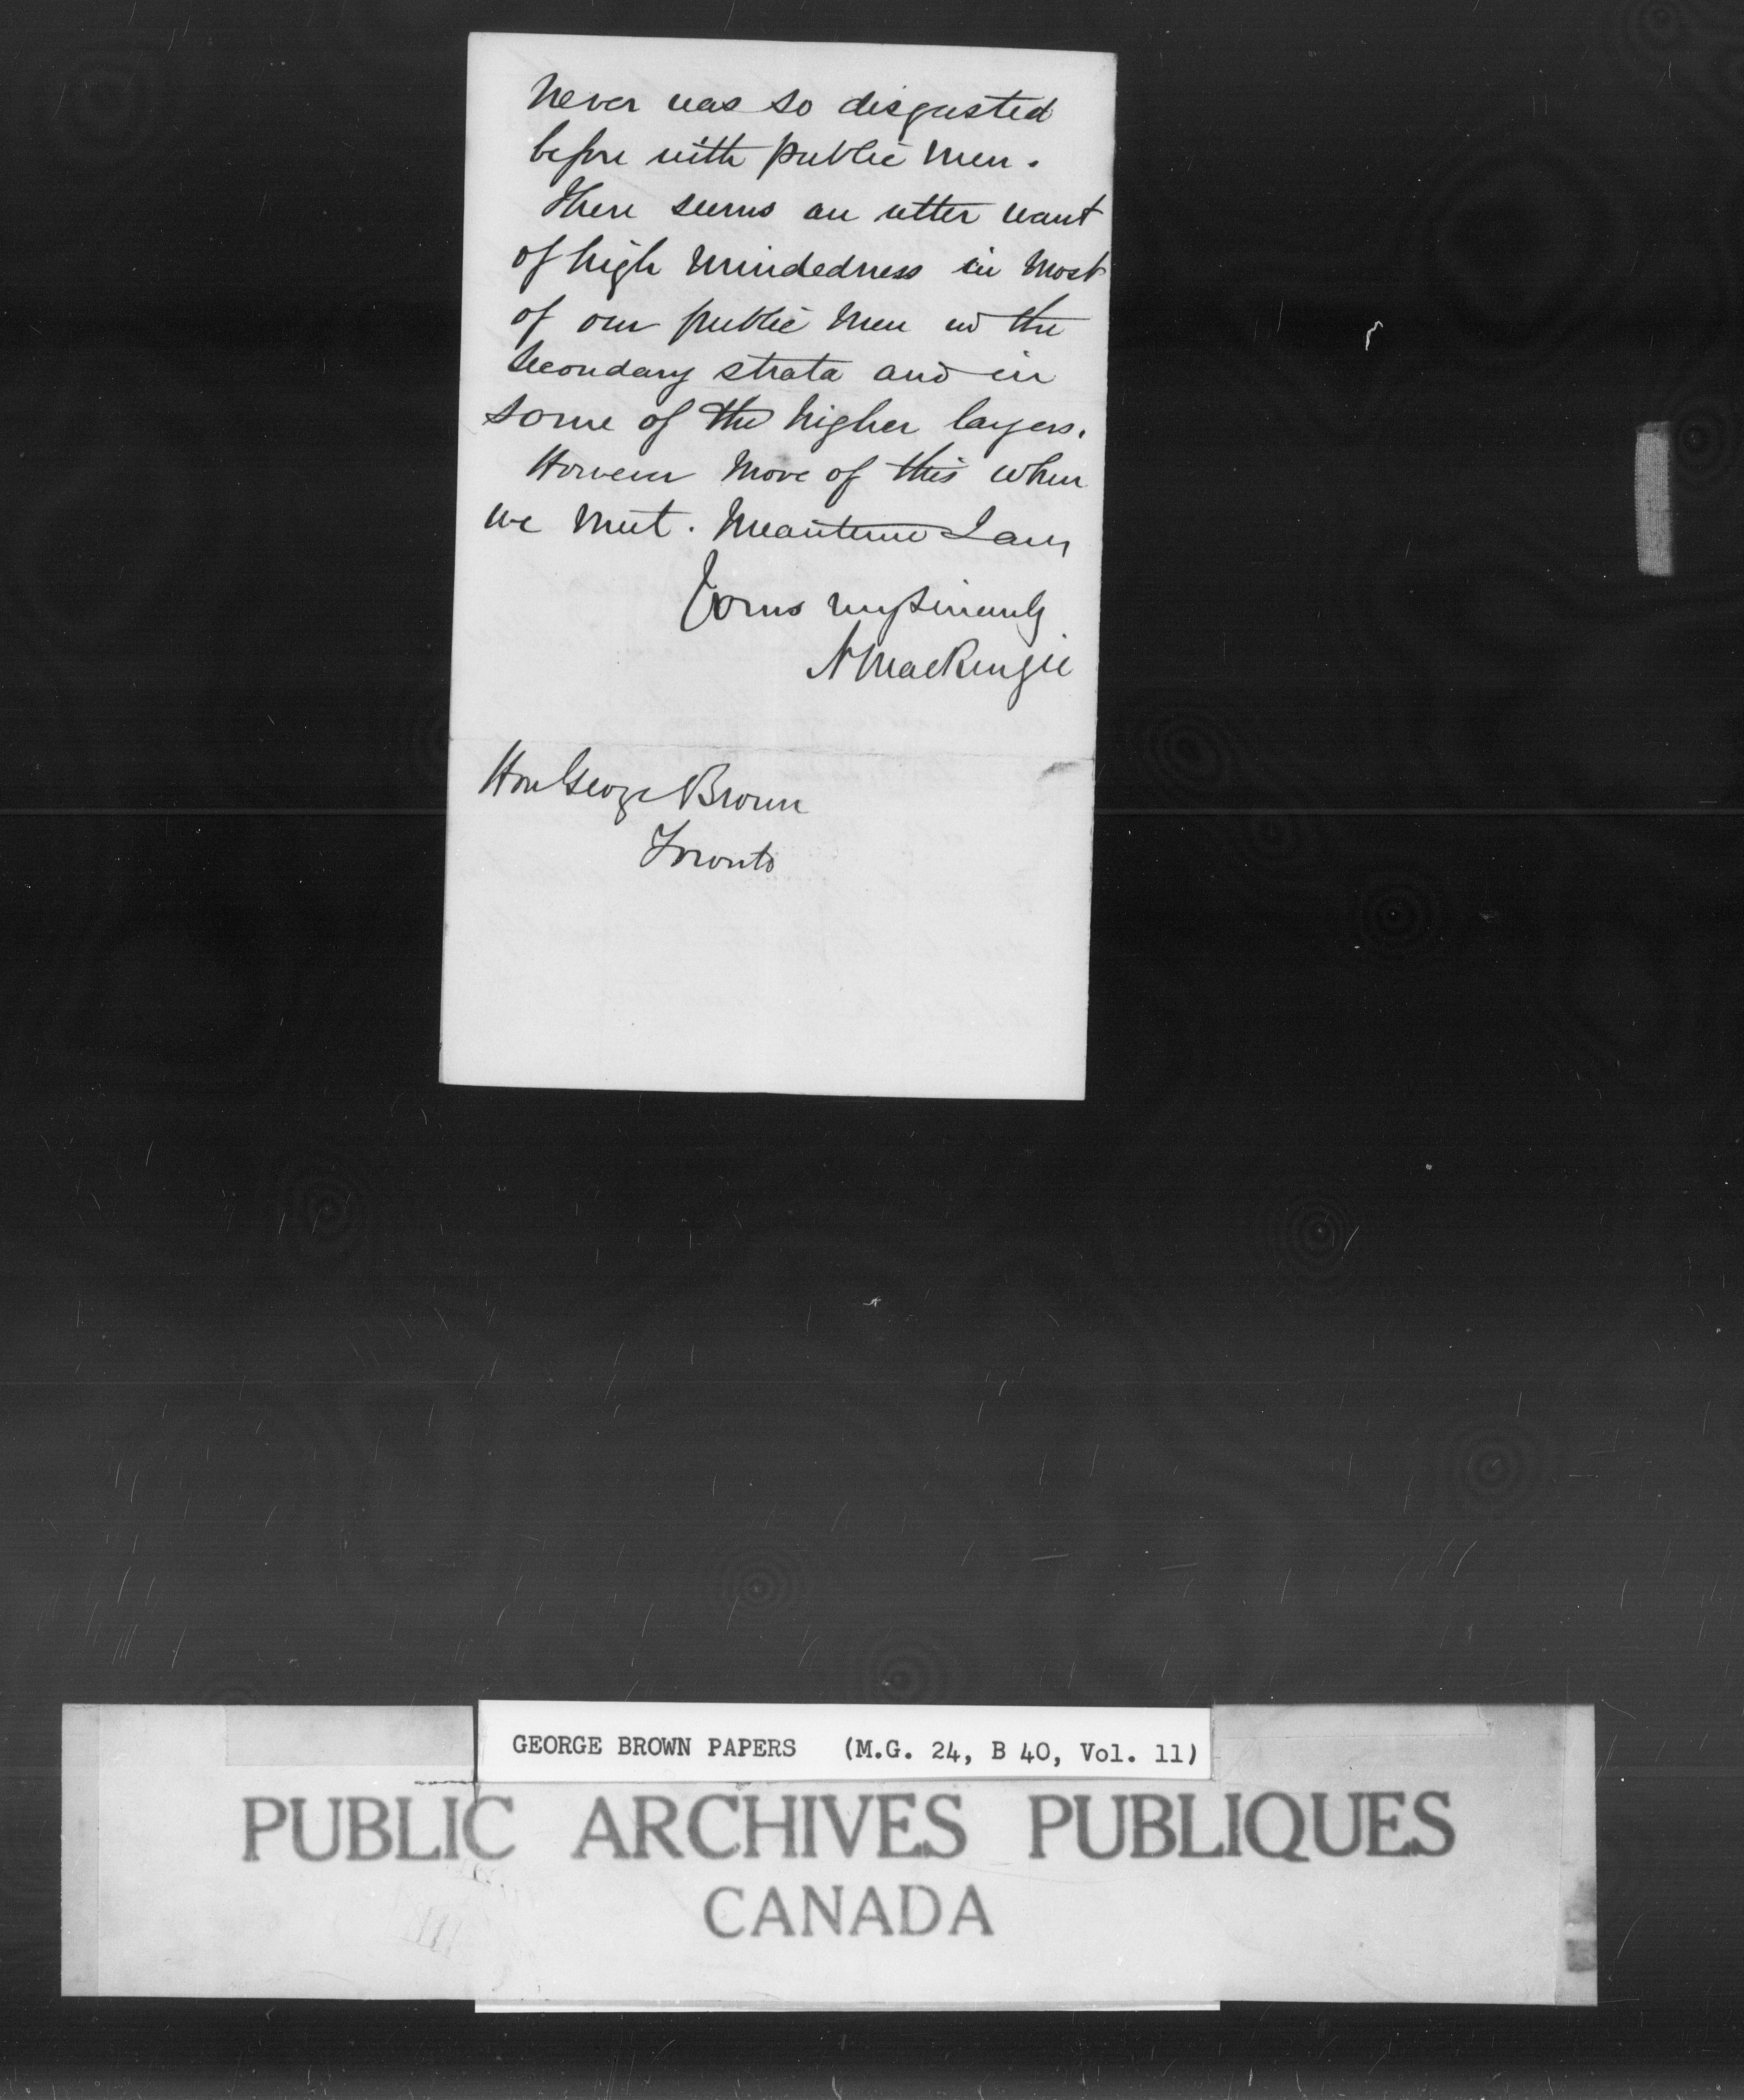 never was so disgusted
before with public men.
There seems an utter want
of high mindedness in most
of our public men in the
secondary strata and in
some of the higher layers.
However more of this when
we meet. Meantime I am
Yours very sincerely
A Mackenzie
Hon George Brown
Toronto
GEORGE BROWN PAPERS (M.G. 24, B 40, Vol. 11)
PUBLIC ARCHIVES PUBLIQUES
CANADA